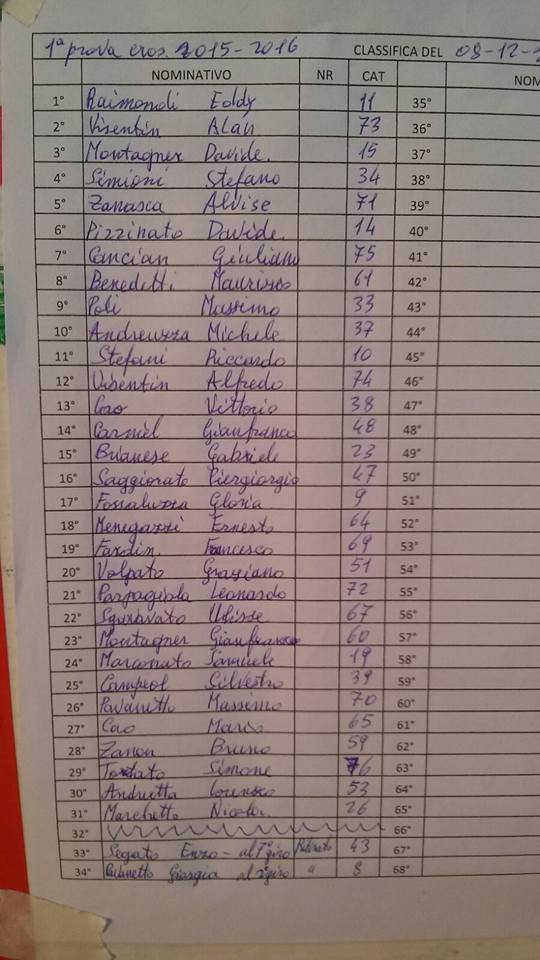 1ª prova cros. 2015-2016 CLASSIFICA DEL 08-12-
NOMINATIVO NR CAT
1° Raimondi Eddy 11 35°
2° Visentin Alan 73 36°
3° Montagner Davide. 15 37°
4° Simioni Stefano 34 38°
5° Zanasca Alvise 71 39°
6° Pizzinato Davide 14 40°
7° Cancian Giuliano 75 41°
8° Benedetti Maurizio 61 42°
9° Poli Massimo 33 43°
10° Andreuzza Michele 37 44°
11° Stefani Riccardo 10 45°
12° Visentin Alfredo 74 46°
13° Cao Vittorio 38 47°
14° Carniel Gianfranco 48 48°
15° Buanese Gabriele 23 49°
16° Saggiorato Piergiorgio 47 50°
17° Fossaluzza Gloria 9 51°
18° Menegazzi Ernesto 64 52°
19° Fardin Francesco 69 53°
20° Volpato Graziano 51 54°
21° Parpagiola Leonardo 72 55°
22° Sguravato Ulisse 67 56°
23° Montagner Gianfranco 60 57°
24° Marconato Samuele 19 58°
25° Campeol Silvestro 39 59°
26° Pavanetto Massimo 70 60°
27° Cao Mario 65 61°
28° Zanon Bruno 59 62°
29° Tortato Simone 76 63°
30° Andretta Lorenzo 53 64°
31° Marchetto Nicolò 26 65°
32° 66°
33° Segato Enzo - al 1°giro Ritirato 43 67°
34° Giorgia al 2°giro " 8 68°